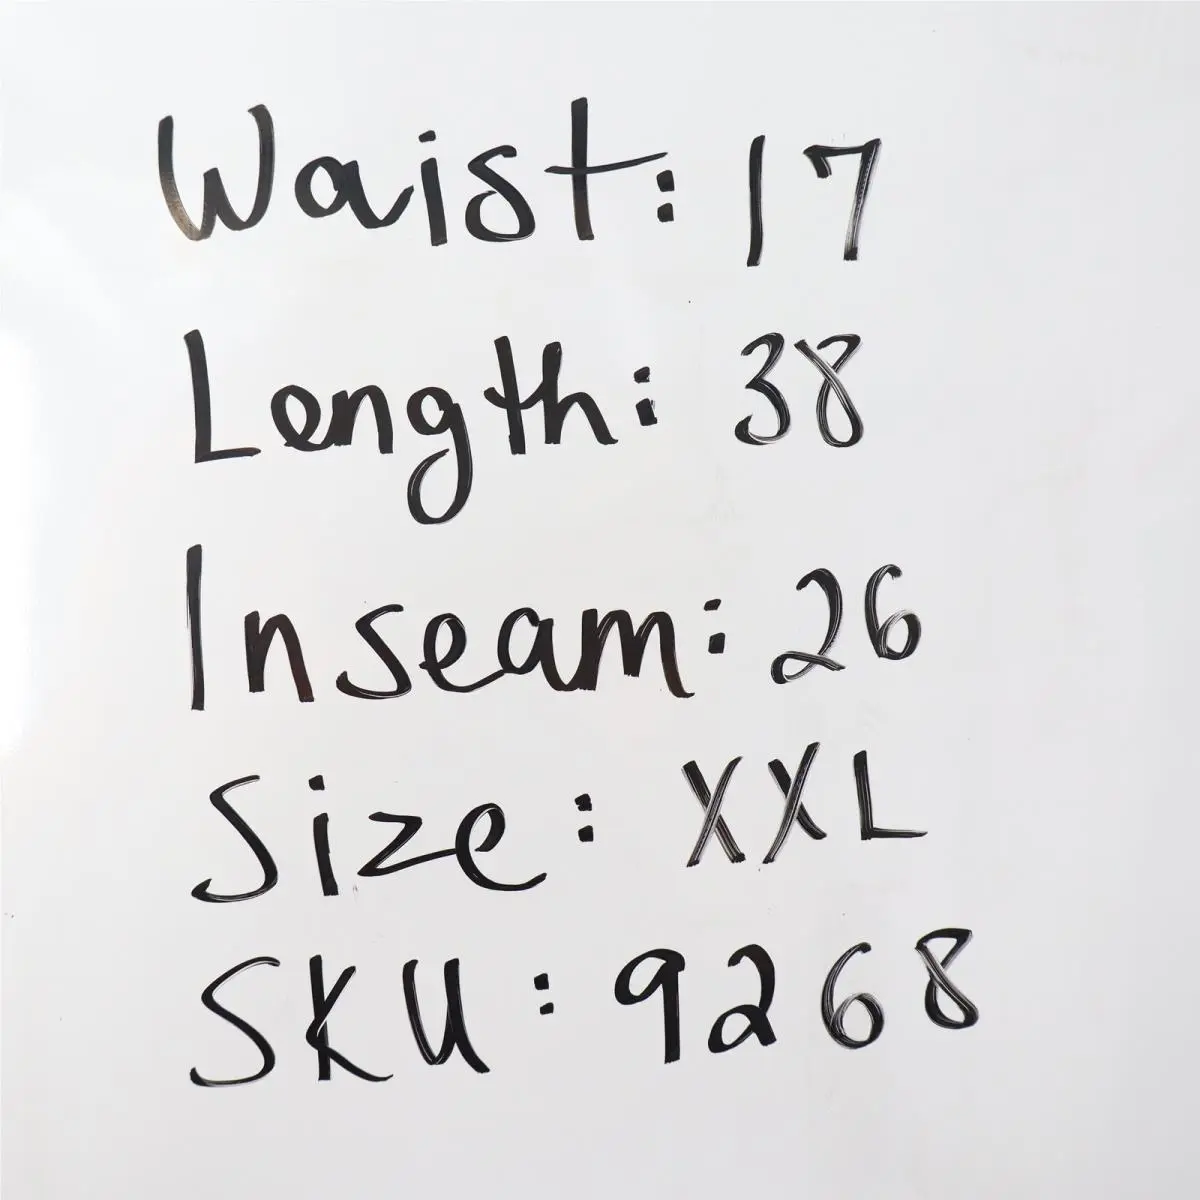 Waist: 17
Length: 38
Inseam: 26
Size: XXL
SKU: 9268